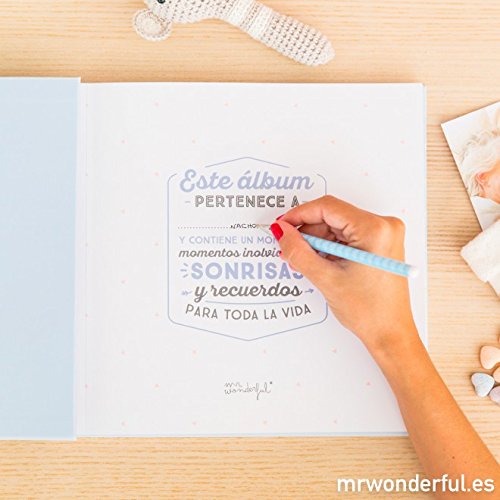 Este álbum
PERTENECE A
NACHO
Y CONTIENE UN
momentos
SONRISAS
y recuerdos
PARA TODA LA VIDA
mr.
wonderful*
mrwonderful.es